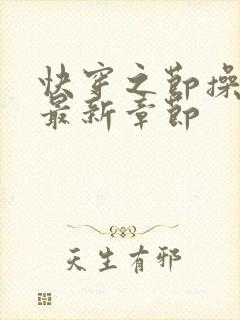 快穿之節操
最新章節
天生有邪